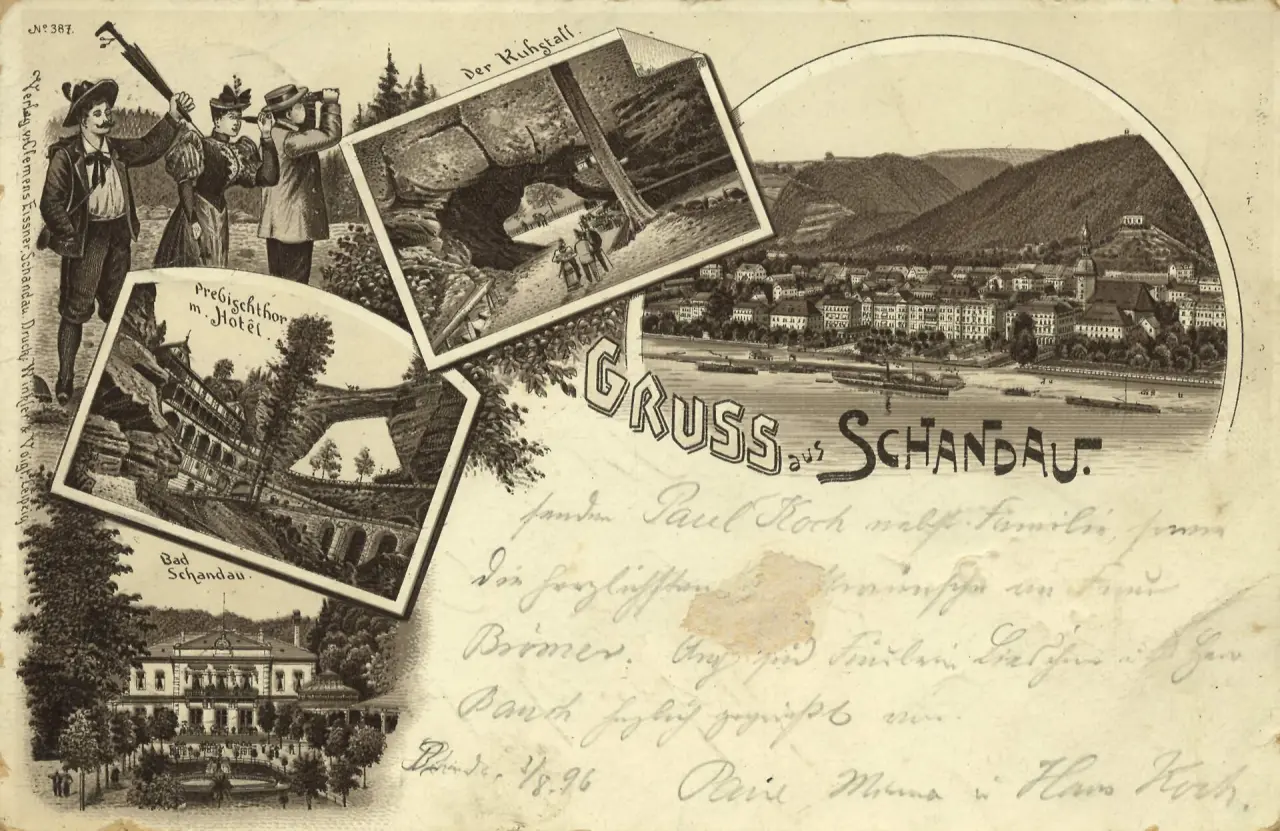 No. 387.
Verlag v. Clemens Eissner, Schandau. Druck, Winkler & Voigt, Leipzig.
Der Kuhstall.
Prebischthor
m. Hotel
Bad
Schandau.
GRUSS aus SCHANDAU.
senden Paul Koch nebst Familie, sowie
die herzlichsten an Frau
Brömer. Fräulein Lieschen
Bauch herzlich gegrüßt von
/8.96 Minna u Hans Koch.